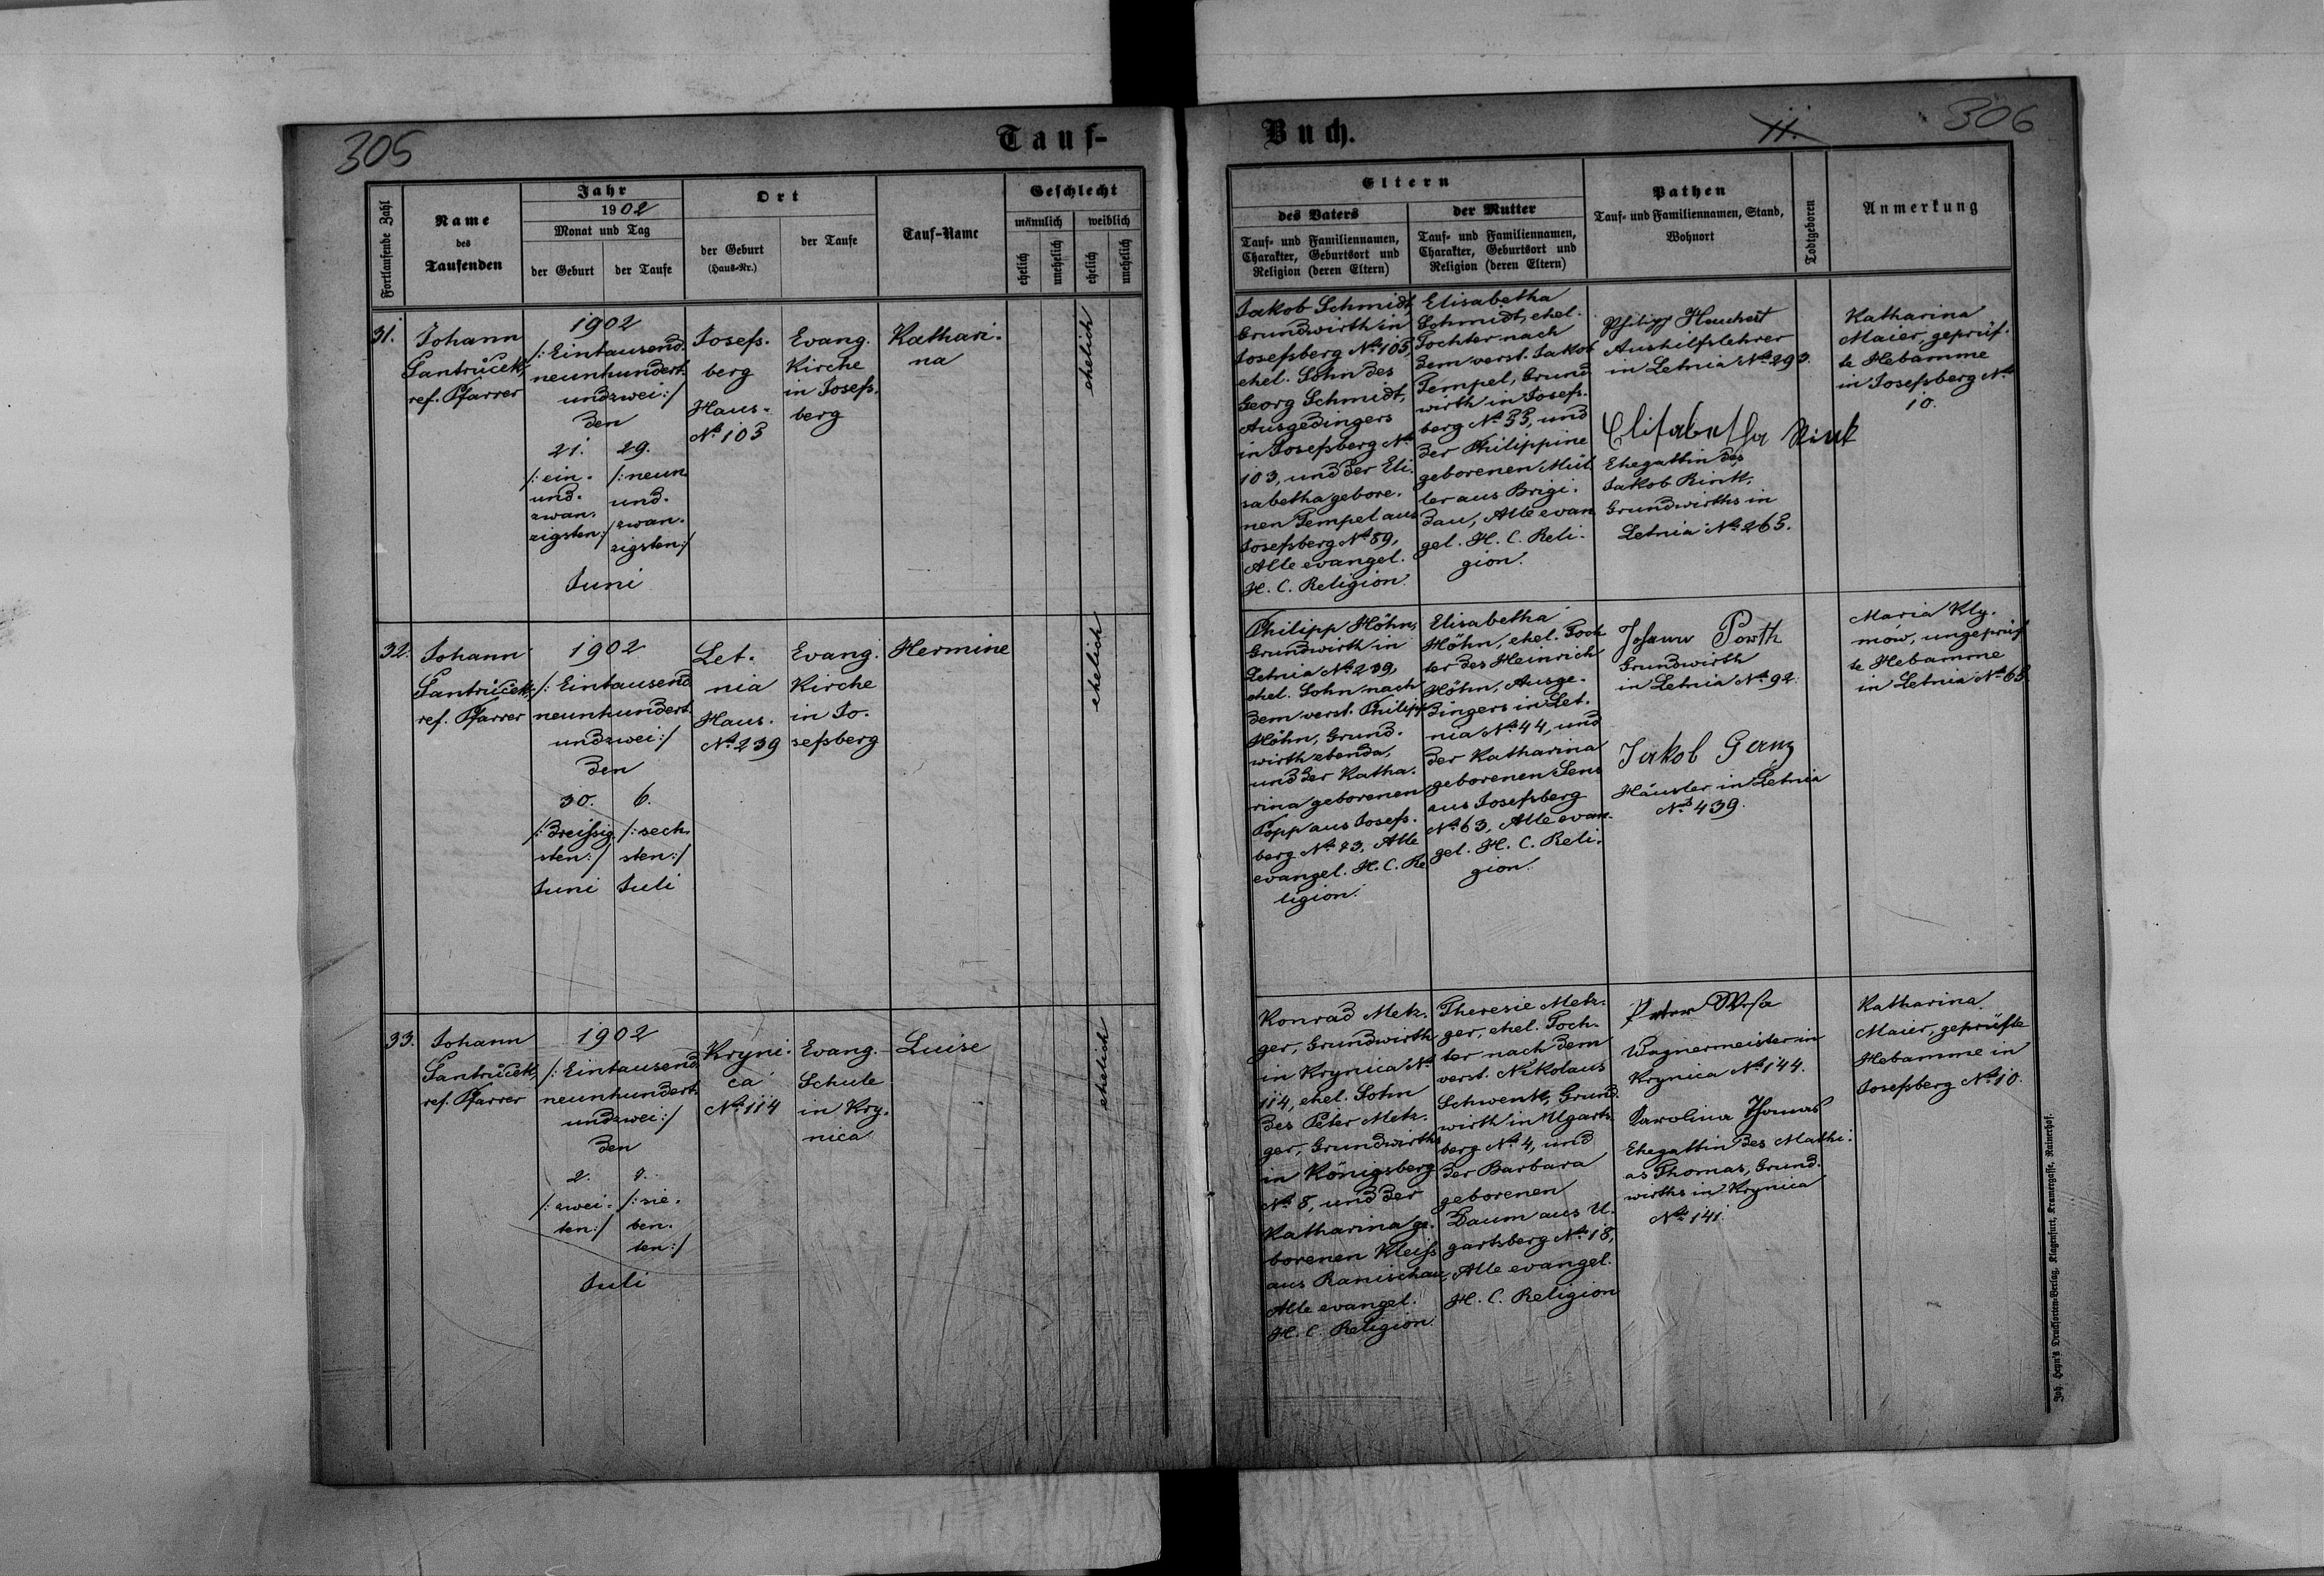 305
Tauf-
Fortlaufende Zahl
Name
des
Taufenden
Jahr
1902
Monat und Tag
der Geburt
der Taufe
Ort
der Geburt
(Haus-Nr.)
der Taufe
Tauf-Name
Geschlecht
männlich
weiblich
ehelich
unehelich
ehelich
unehelich
31.
Johann
Jantrůček,
ref. Pfarrer
1902
/: Eintausend-
neunhundert-
undzwei :/
den
21.
/: ein-
und-
zwan-
zigsten :/
29.
/: neun
und-
zwan-
zigsten :/
Juni
Josefs-
berg
Haus-
No. 103
Evang.
Kirche
in Josefs-
berg
Kathari-
na
ehelich
32.
Johann
Jantrůček,
ref. Pfarrer
1902
/: Eintausend
neunhundert-
undzwei :/
den
30.
/: dreissig-
sten :/
Juni
6.
/: sech
sten :/
Juli
Let-
nia
Haus-
No. 239
Evang.
Kirche
in Jo-
sefsberg
Hermine
ehelich
33.
Johann
Jantrůček,
ref. Pfarrer
1902
/: Eintausend
neunhundert-
undzwei :/
den
2.
/: zwei-
ten :/
7.
/: sie-
ben-
ten :/
Juli
Kryni-
ca
No. 114
Evang.
Schule
in Kry-
nica
Luise
ehelich
Buch.
11.
306
Eltern
des Vaters
Tauf- und Familiennamen,
Charakter, Geburtsort und
Religion (deren Eltern)
der Mutter
Tauf- und Familiennamen,
Charakter, Geburtsort und
Religion (deren Eltern)
Pathen
Tauf- und Familiennamen, Stand,
Wohnort
Todtgeboren
Anmerkung
Jakob Schmidt,
Grundwirth in
Josefsberg No. 103,
ehel. Sohn des
Georg Schmidt,
Ausgedingers
in Josefsberg No.
103, und der Eli-
sabetha gebore-
nen Tempel aus
Josefsberg No. 89,
Alle evangel.
H. C. Religion.
Elisabetha
Schmidt, ehel.
Tochter nach
dem verst. Jakob
Tempel, Grund
wirth in Josefs-
berg No. 55, und
der Philippine
geborenen Mül
ler aus Brigi-
dau, Alle evan
gel. H. C. Reli-
gion.
Philipp
Aushilfslehrer
in Letnia No. 293.
Elisabetha Rink
Ehegattin des
Jakob Rink,
Grundwirths in
Letnia No. 265.
Katharina
Maier, geprüf-
te Hebamme
in Josefsberg No.
10.
Philipp Höhn,
Grundwirth in
Letnia No. 239,
ehel. Sohn nach
dem verst. Philipp
Höhn, Grund-
wirth ebenda,
und der Katha-
rina geborenen
Popp aus Josefs-
berg No. 73, Alle
evangel. H. C. Re
ligion.
Elisabetha
Höhn, ehel. Toch
ter des Heinrich
Höhn, Ausge-
dingers in Let-
nia No. 44, und
der Katharina
geborenen
aus Josefsberg
No. 63, Alle evan-
gel. H. C. Reli-
gion.
Johann Porth
Grundwirth
in Letnia No. 92.
Jakob Ganz
Häusler in Letnia
No. 439.
Maria Kly-
mów, ungeprüf
te Hebamme
in Letnia No.
Konrad Metz-
ger, Grundwirth
in Krynica No.
114, ehel. Sohn
des Peter Metz-
ger, Grundwirths
in Königsberg
No. 8, und der
Katharina ge-
borenen Kleiss
aus Ranischau,
Alle evangel.
H. C. Religion.
Theresie Metz-
ger, ehel. Toch-
ter nach dem
verst. Nikolaus
Schwenk, Grund
wirth in Ugarts-
berg No. 4, und
der Barbara
geborenen
Daum aus U-
gartsberg No. 18,
Alle evangel.
H. C. Religion
Peter
Wagnermeister in
Krynica No. 144.
Karolina Thomas
Ehegattin des Mathi-
as Thomas, Grund-
wirths in Krynica
No. 141.
Katharina
Maier, geprüfte
Hebamme in
Josefsberg No. 10.
Joh. Heyn's Drucksorten-Verlag, Klagenfurt, Kramergasse, Rainerhof.